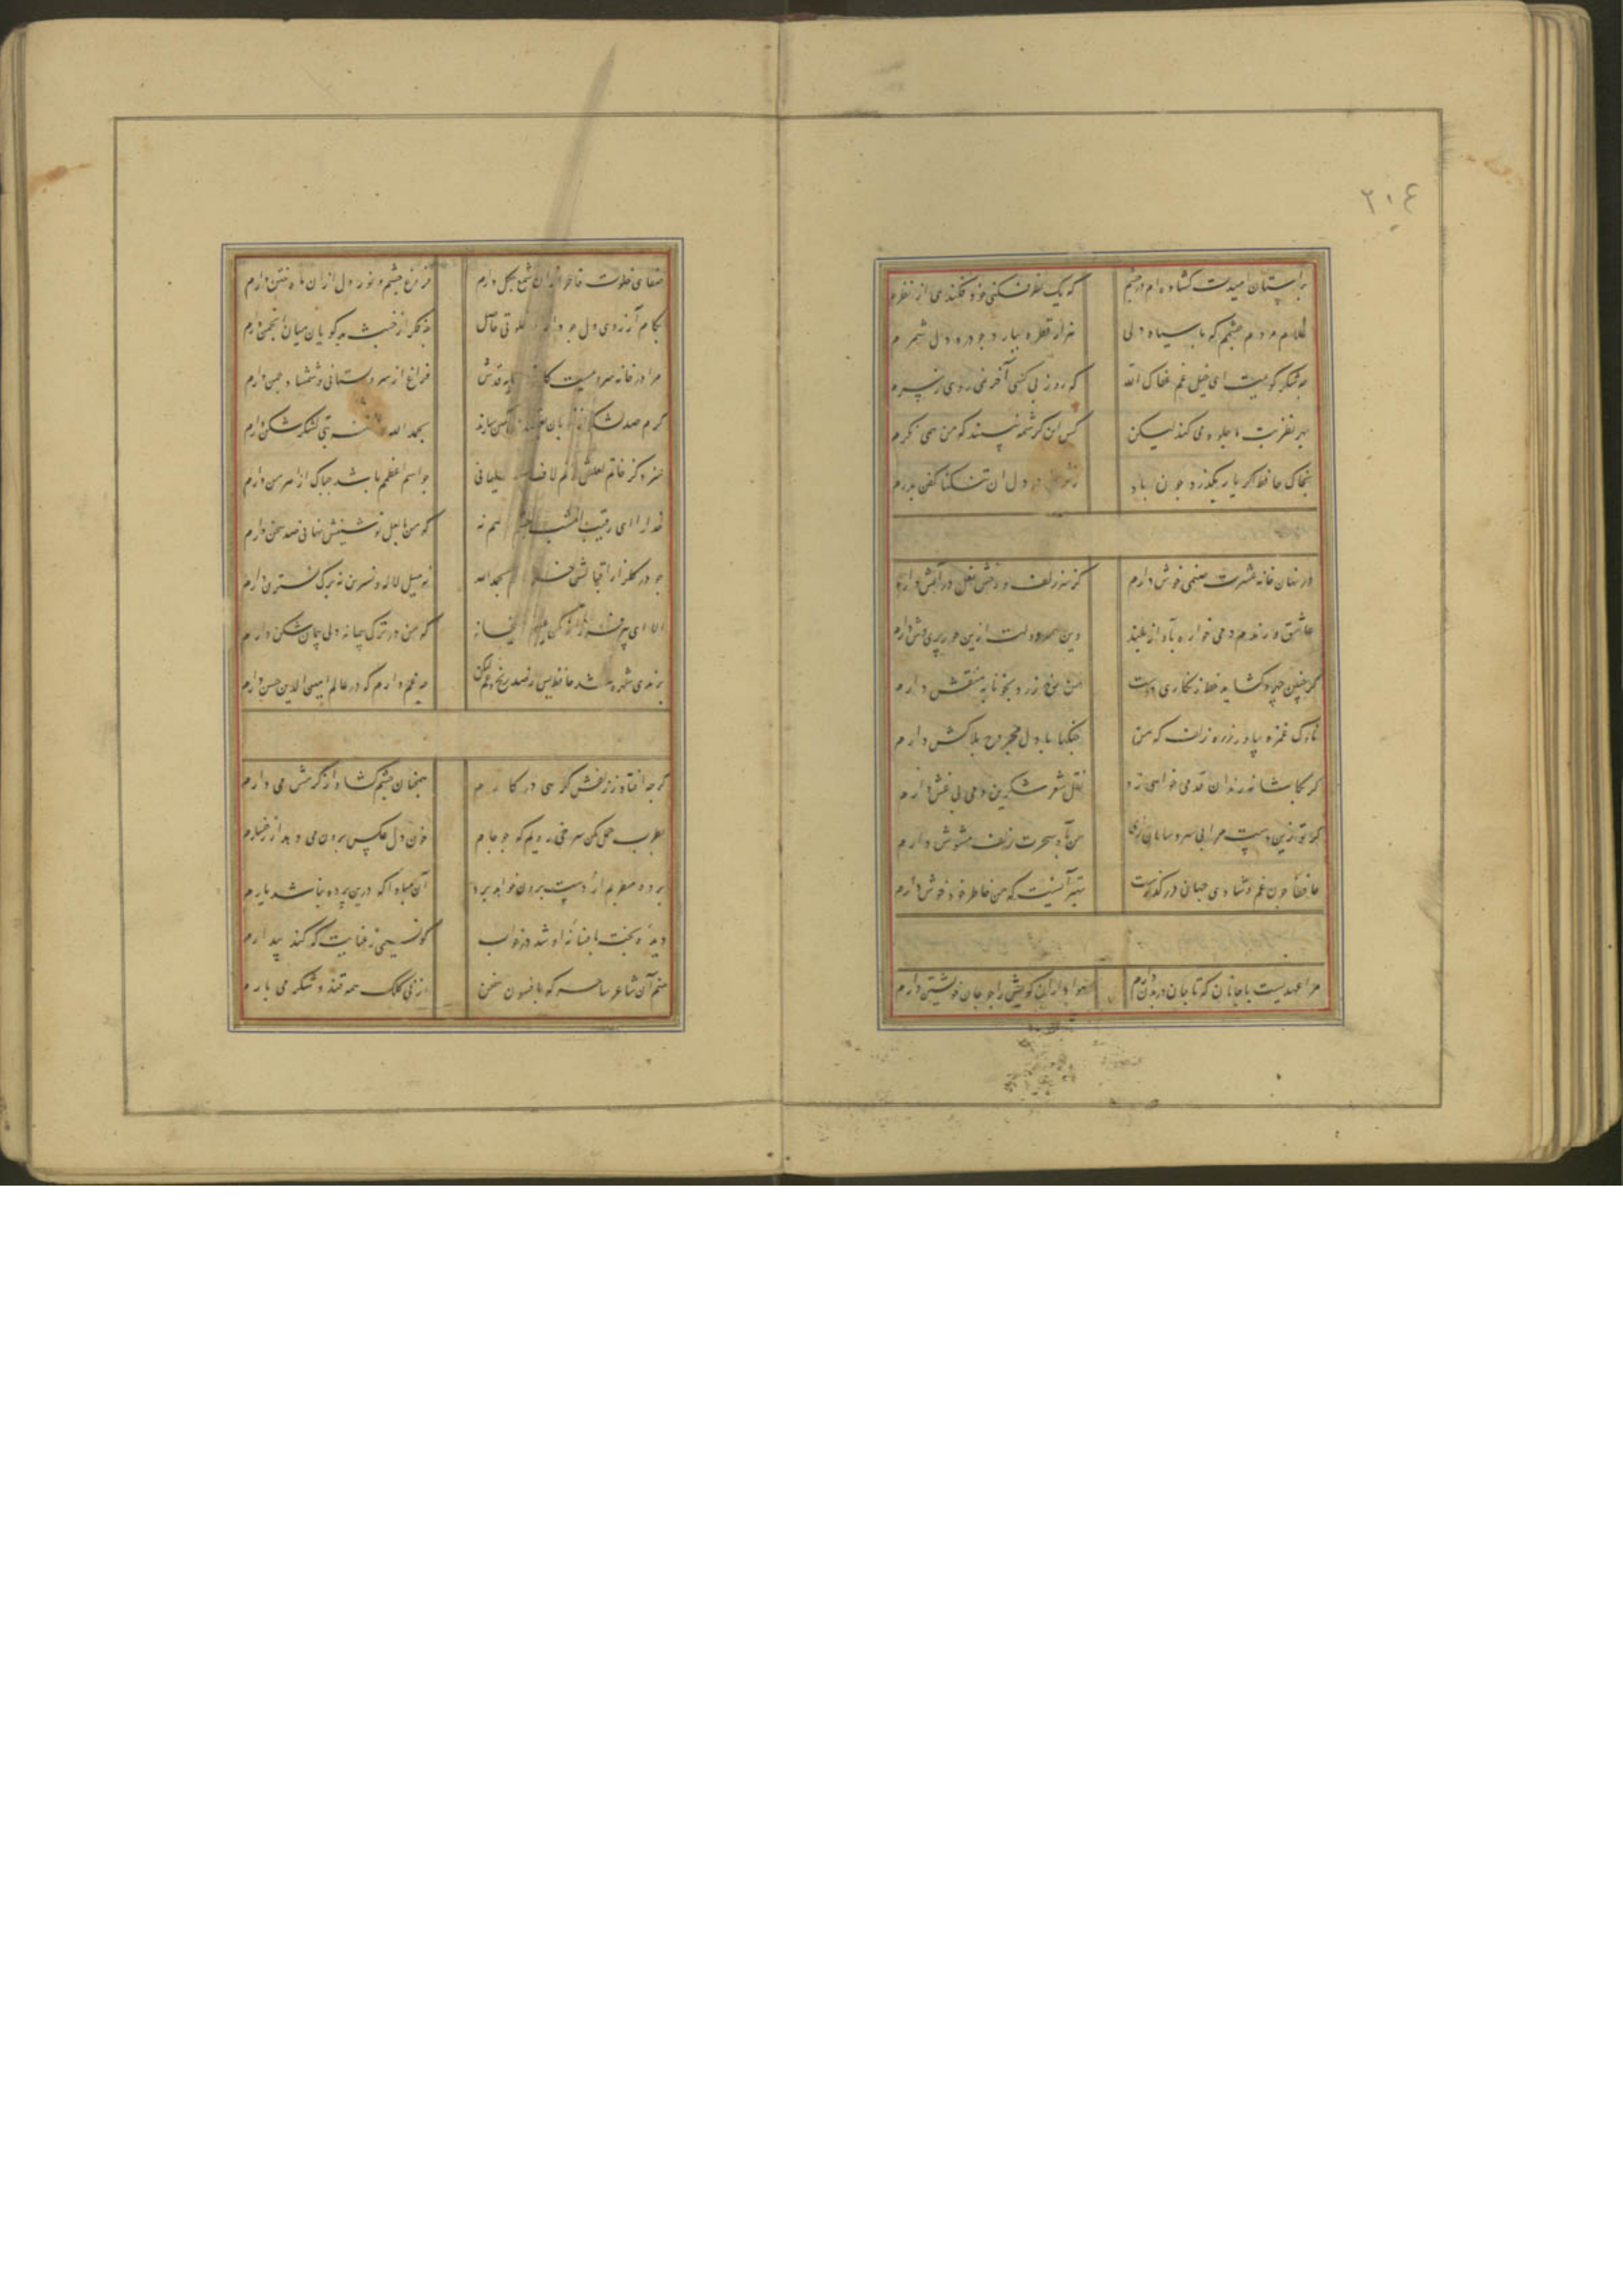 ٢٠٤
بر آستان امیدت گشاده ام در چشم
که یک نظر فکنی خود فکندی از نظرم
غلام مردم چشمم که با سیاه دلی
هزار قطره ببارد چو درد دل شمرم
چه شکر گویمت ای خیل غم عفاک الله
که روز بی کسی آخر نمی روی ز سرم
بهر نظر بت ما جلوه می کند لیکن
کس این کرشمه نبیند که من همی نگرم
بخاک حافظ اگر یار بگذرد چون باد
ز شوق در دل آن تنگنا کفن بدرم
در نهان خانه عشرت صنمی خوش دارم
کز سر زلف و رخش نعل در آتش دارم
عاشق و رندم و می خواره بآواز بلند
وین همه دولت ازین حور پری وش دارم
گر چنین چهره گشاید خط زنگاری دوست
من رخ زرد بخونابه منقش دارم
ناوک غمزه بیاور زره زلف که من
جنگها با دل مجروح بلاکش دارم
گر بکاشانه رندان قدمی خواهی زد
نقل شعر شکرین و می بی غش دارم
گر تو زین دست مرا بی سر و سامان داری
من بآه سحرت زلف مشوش دارم
حافظا چون غم و شادی جهان در گذرست
بهتر آنست که من خاطر خود خوش دارم
مرا عهدیست با جانان که تا جان در بدن دارم
هواداران کویش را چو جان خویشتن دارم
صفای خلوت خاطر از آن شمع چگل دارم
فروغ چشم و نور دل از آن ماه ختن دارم
بکام آرزوی دل چو دارم خلوتی حاصل
چه فکر از خبث بدگویان میان انجمن دارم
مرا در خانه سرویست کاندر سایه قدش
فراغ از سرو بستانی و شمشاد چمن دارم
گرم صد لشکر از خوبان بقصد دل کمین سازند
بحمد الله بتی لشکر شکن دارم
سزد کز خاتم لعلش زنم لاف سلیمانی
چو اسم اعظمم باشد چه باک از اهرمن دارم
خدا را ای رقیب امشب هم نه
که من با لعل نوشینش نهانی صد سخن دارم
چو در گلزار اقبالش بحمد الله
نه میل لاله و نسرین نه برگ نسترن دارم
الا ای پیر فرزانه مکن میخانه
که من در ترک پیمانه دلی پیمان شکن دارم
برندی شهره شد حافظ پس از صد رنج و غم لیکن
چه غم دارم که در عالم امین الدین حسن دارم
گرچه افتاد ز زلفش گرهی در کارم
همچنان چشم گشاد از کرمش می دارم
بطرب حمل مکن سرخی رویم که چو جام
خون دل عکس برون می دهد از رخسارم
پرده مطربم از دست برون خواهد برد
آه اگر درین پرده نباشد یارم
دیده بخت بافسانه او شد در خواب
کو نسیمی ز عنایت که کند بیدارم
منم آن شاعر ساحر که بافسون سخن
از نی کلک همه قند و شکر می بارم